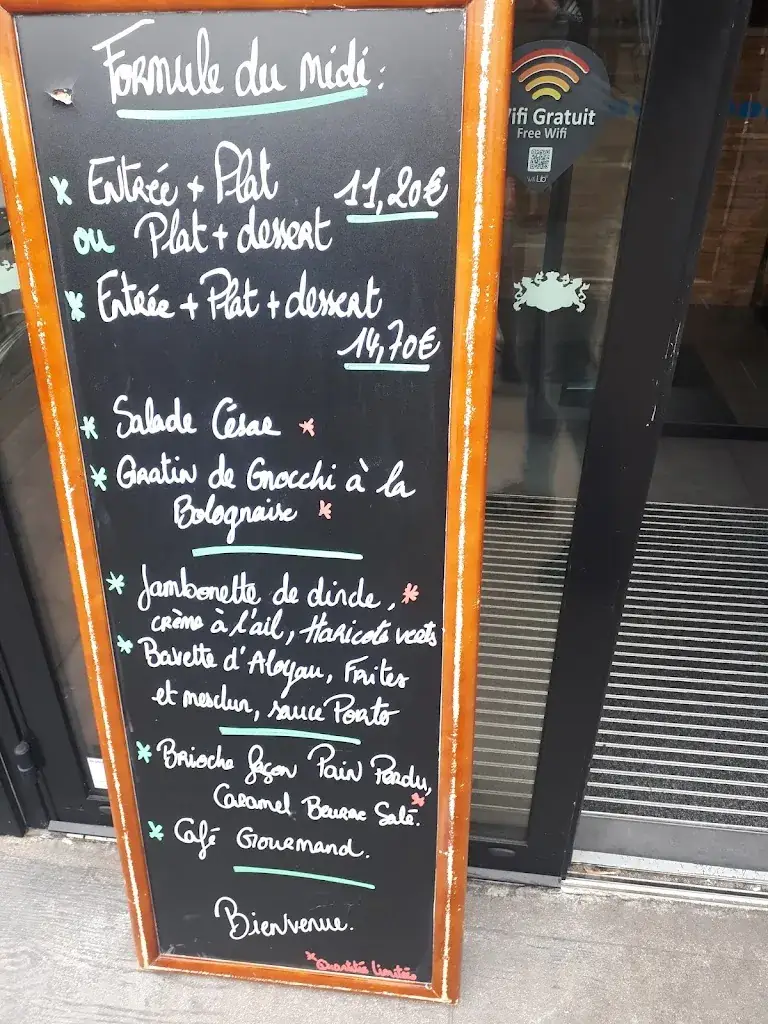 Formule du midi :
* Entrée + Plat 11,20€
ou Plat + dessert
* Entrée + Plat + dessert
14,70€
* Salade César *
* Gratin de Gnocchi à la
Bolognaise *
* Jambonette de dinde, *
crème à l'ail, Haricots verts
* Bavette d'Aloyau, Frites
et mesclun, sauce Porto
* Brioche façon Pain Perdu,
Caramel Beurre Salé. *
* Café Gourmand.
Bienvenue.
* Quantités limitées
Wifi Gratuit
Free Wifi